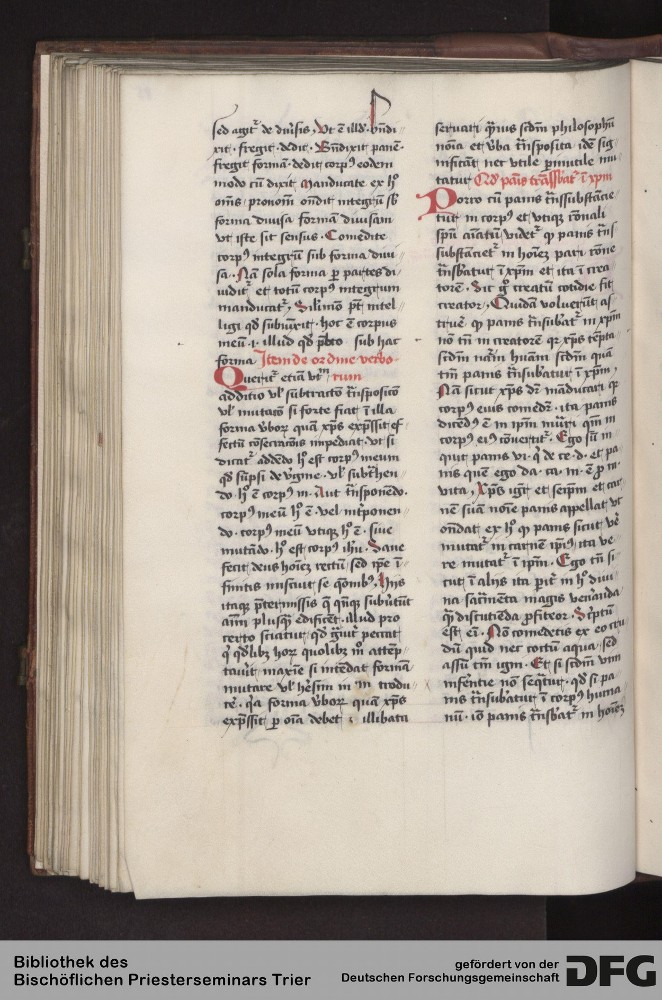 sed agit᷑ de diu̾sis, Vt ē illd᷑ · bn̄di
xit · fregit · dedit · Bn̄dixit panē ·
fregit formā · dedit corpꝰ eodem
modo cū dixit Manducate ex hͦ
om̄s · pronom̄ on̄dit integrū sb̄
forma diuisa formā diuisam
vt iste sit sensus · Comedite
corpꝰ integrū sub forma diui
sa · Nā sola forma ꝑ partes di
uidit᷑ et totū corpꝰ integrum
manducat᷑, p̄t intel
ligi qd̄ subiūxit · hoc ē corpus
meū · i · illud qd̄ sub hac
forma Item de ordine verbo
Querit᷑ etiā vtͫ rum
additio vl̓ subtractō tn̄spositō
vl̓ mutatō si forte fiat ī illa
forma v̓boꝝ quā xp̄s exp̄ssit ef
fectū cōsecratōis impediat · vt si
dicat᷑ addēdo hͦ est corpꝰ meum
qd̄ sūpsi de v̓gine · vl̓ subt᷑hen
do · hͦ ē corpꝰ m̄ · Aut tn̄sponēdo ·
corpꝰ meū hͦ ē · vel int̓ponen
do · corpꝰ meū vtiqꝫ hͦ ē · siue
mutādo · hͦ est corpꝰ ihū · Sane
fecit deus hoīeꝫ rectū sed ip̄e ī
finitis miscuit se q̄onibꝰ, Hijs
itaqꝫ p̄termissis
aīm plusqꝫ edificēt · illud pro
certo sciatur, qd̄ peccat
q̄ qd̄libꝫ hoꝝ quolibꝫ mͦ attēp
tau̓it maxīe si intēdat formā
mutare vl̓ h̓esim in trodu
ce᷑ · q̄a forma v̓boꝝ quā xp̄s
exp̄ssit ꝑ oīa debet illibata
seruari sc̄dm philosophū
noīa et v̓ba tn̄sposita idē sig
nificāt, nec vtile ꝑ inutile mu
tatur Qd̄ panis trāssbat᷑ ī xp̄m
Porro cū panis tn̄ssubstācie
tur in corpꝰ et vtiqꝫ rōnali
sp̄u aīatū videt᷑ ꝙ panis tn̄s
substāciet᷑ in hoīeꝫ pari rōne
tn̄sbātur ī xp̄m et ita ī crea
torē · Sic gͦ creatū cotidie fit
creator, Quidā voluerūt as
true᷑ ꝙ panis tn̄subat᷑ in xp̄m
nō tn̄ in creatorem qꝛ xp̄s
sc̄dm nat᷑m huāni sc̄dm quā
tm̄ panis tn̄subatur ī xp̄m,
Nā sicut xp̄s dr̄ māducari qꝛ
corpꝰ eius comedit᷑ · ita panis
dicēdꝰ ē in ip̄m mutari qm̄ in
corpꝰ eiꝰ cōuertit᷑ · Ego sū in
quit panis vi · q̄ de ce · d · et pa
nis quē ego da · ca · m · ē ꝓ m̄
vita, Xp̄s igr̄ et seip̄m et car
nē suā noīe panis appellat vt
on̄dat ex hͦ ꝙ panis sicut v̓e
mutat᷑ in carnē ip̄iꝰ, ita ve
re mutat᷑ ī ip̄m · Ego tn̄ si
cut ī alijs ita in hͦ diui
na sacr̄menta magis ven̓anda
q̄ discutienda ꝓfiteor · Sc̓ptū
est ei · Nō comedetis ex eo cru
dū quid nec coctū aqua · sed
assū tm̄ igni · Et si sc̄dm vtm
inferentie nō seqͣtur · qd̄ si pa
nis tn̄subatur ī corpꝰ huma
nū · iō panis tn̄sbat᷑ in hoīeꝫ
Bibliothek des
Bischöflichen Priesterseminars Trier
gefördert von der
Deutschen Forschungsgemeinschaft
DFG